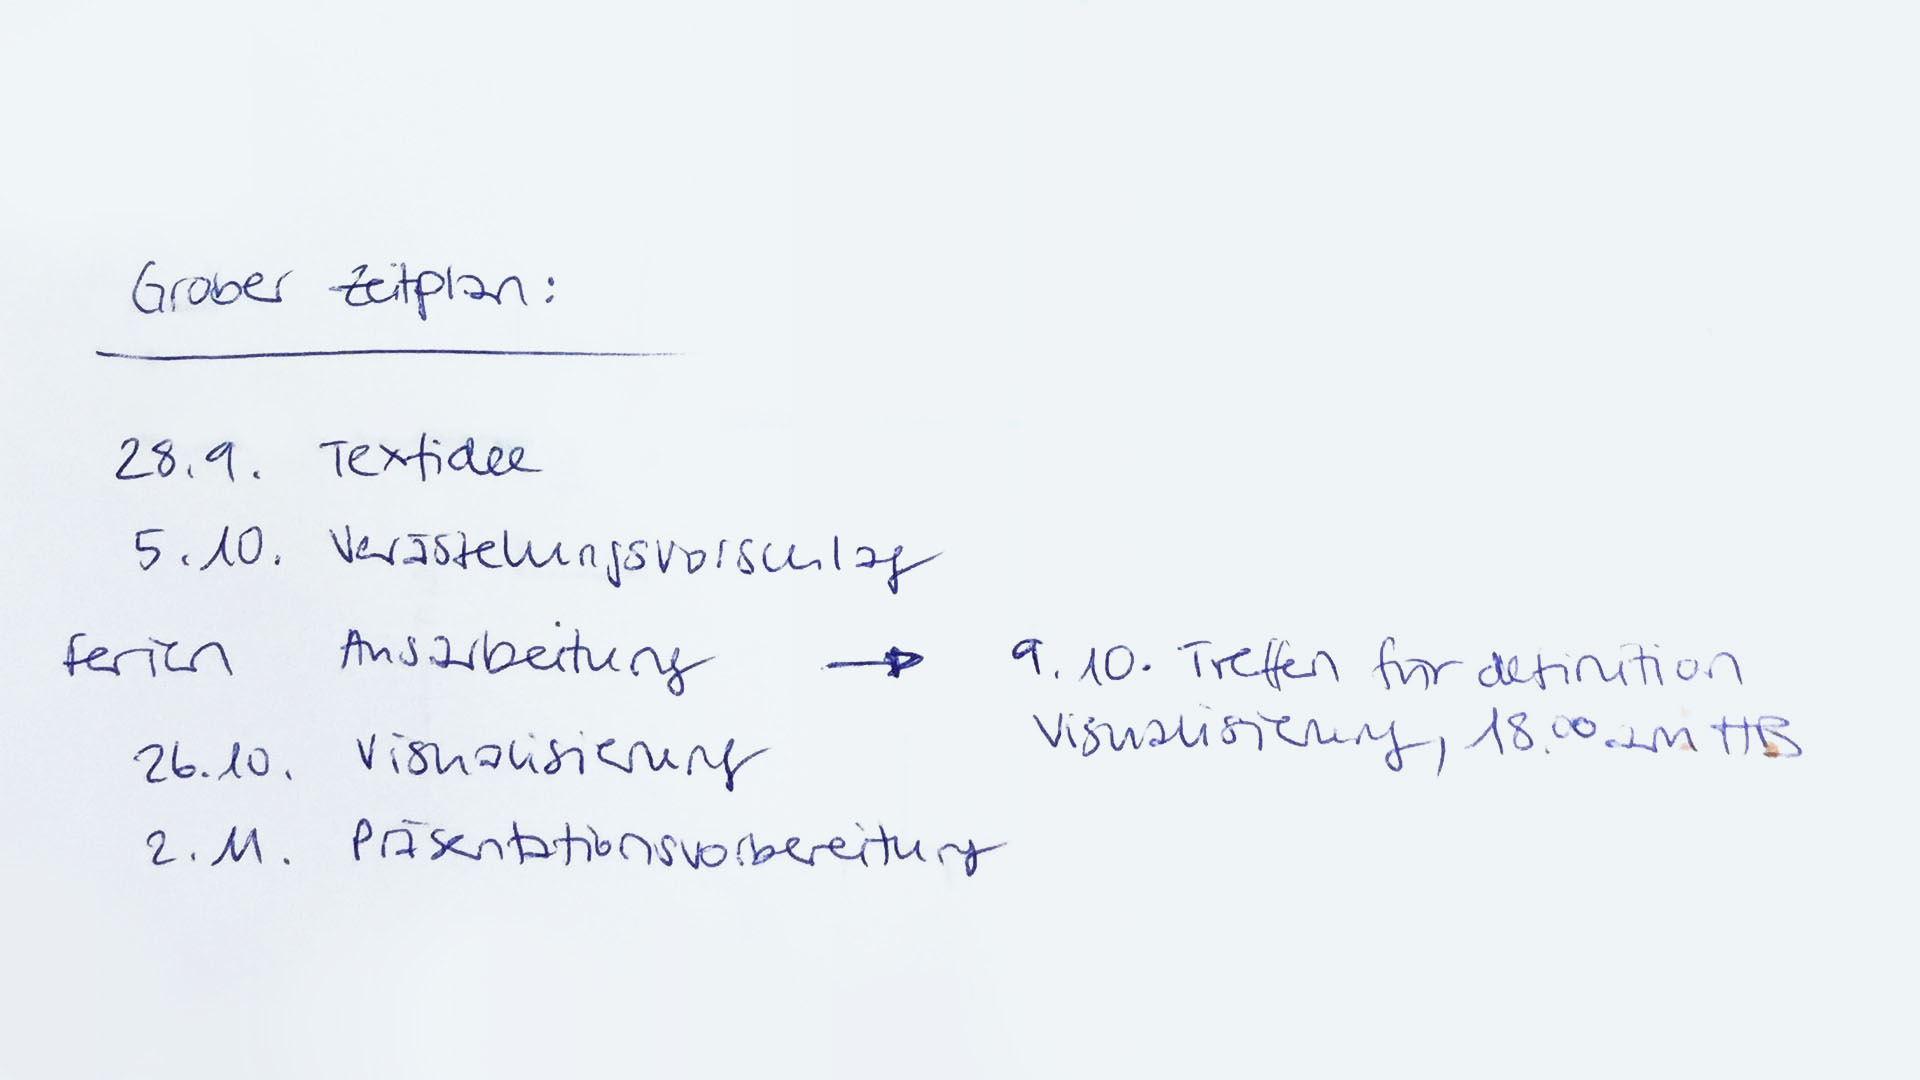 Grober Zeitplan:
28.9. Textidee
5.10. Verästelungsvorschlag
Ferien Ausarbeitung → 9.10. Treffen für definition
Visualisierung, 18.00 am HB
26.10. Visualisierung
2.11. Präsentationsvorbereitung